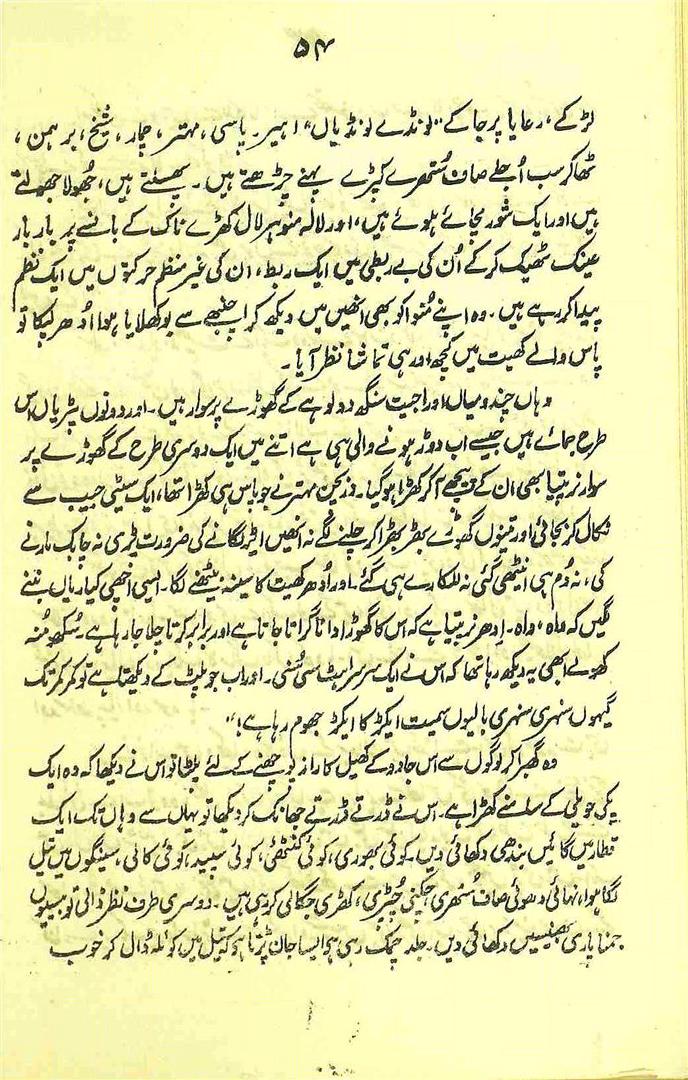 ۵۴
لڑکے، رعایا پرجا کے "لونڈے لونڈیاں" اہیر۔ پاسی، مہتر، چمار، شیخ، برہمن،
ٹھاکر سب اُجلے صاف سُتھرے کپڑے پہنے چڑھتے ہیں۔ پھسلتے ہیں، جُھولا جھولتے
ہیں اور ایک شور مچائے ہوئے ہیں، اور لالہ منوہر لال کھڑے ناک کے بانسے پر بار بار
عینک ٹھیک کر کے اُن کی بے ربطی میں ایک ربط، ان کی غیر منظم حرکتوں میں ایک نظم
پیدا کر رہے ہیں۔ وہ اپنے مُنوا کو بھی انھیں میں دیکھ کر اچنبھے سے بوکھلایا ہوا اُدھر لپکا تو
پاس والے کھیت میں کچھ اور ہی تماشا نظر آیا۔
وہاں چندو میاں اور اجیت سنگھ دو لوہے کے گھوڑے پر سوار ہیں۔ اور دونوں پٹریاں اس
طرح جمائے ہیں جیسے اب دوڑ ہونے والی ہی ہے اتنے میں ایک دوسری طرح کے گھوڑے پر
سوار نرپتیا بھی ان کے پیچھے آ کر کھڑا ہو گیا۔ مہتر نے جو پاس ہی کھڑا تھا، ایک سیٹی جیب سے
نکال کر بجائی اور تینوں گھوڑے بھڑ بھڑا کر چلنے لگے نہ انھیں ایڑ لگانے کی ضرورت پڑی نہ چابک مارنے
کی، نہ دُم ہی اینٹھی گئی نہ للکارے ہی گئے۔ اور اُدھر کھیت کا سینہ پھٹنے لگا۔ ایسی اچھی کیاریاں بننے
لگیں کہ واہ، واہ۔ اِدھر نرپتیا ہے کہ اس کا گھوڑا دانا گراتا جاتا ہے اور برابر کرتا چلا جا رہا ہے۔ سُکھو مُنہ
کھولے ابھی یہ دیکھ رہا تھا کہ اس نے ایک سرسراہٹ سی سُنی۔ اور اب جو پلٹ کے دیکھتا ہے تو کمر کمر تک
گیہوں سنہری سنہری بالیوں سمیت ایکڑ کا ایکڑ جھوم رہا ہے!"
وہ گھبرا کر لوگوں سے اس جادو کے کھیل کا راز پوچھنے کے لئے پلٹا تو اس نے دیکھا کہ وہ ایک
پکی حویلی کے سامنے کھڑا ہے۔ اس نے ڈرتے ڈرتے جھانک کر دیکھا تو یہاں سے وہاں تک ایک
قطار میں گائیں بندھی دکھائی دیں۔ کوئی بھوری، کوئی کوئی سپید، کوئی کالی، سینگوں میں تیل
لگا ہوا، نہائی دھوئی صاف سُتھری چکنی چُپڑی، کھڑی جگالی کر رہی ہیں۔ دوسری طرف نظر ڈالی تو بیسیوں
جمنا پاری بھینسیں دکھائی دیں۔ جلد چمک رہی ہے ایسا جان پڑتا ہو کہ تیل میں کوئلہ ڈال کر خوب